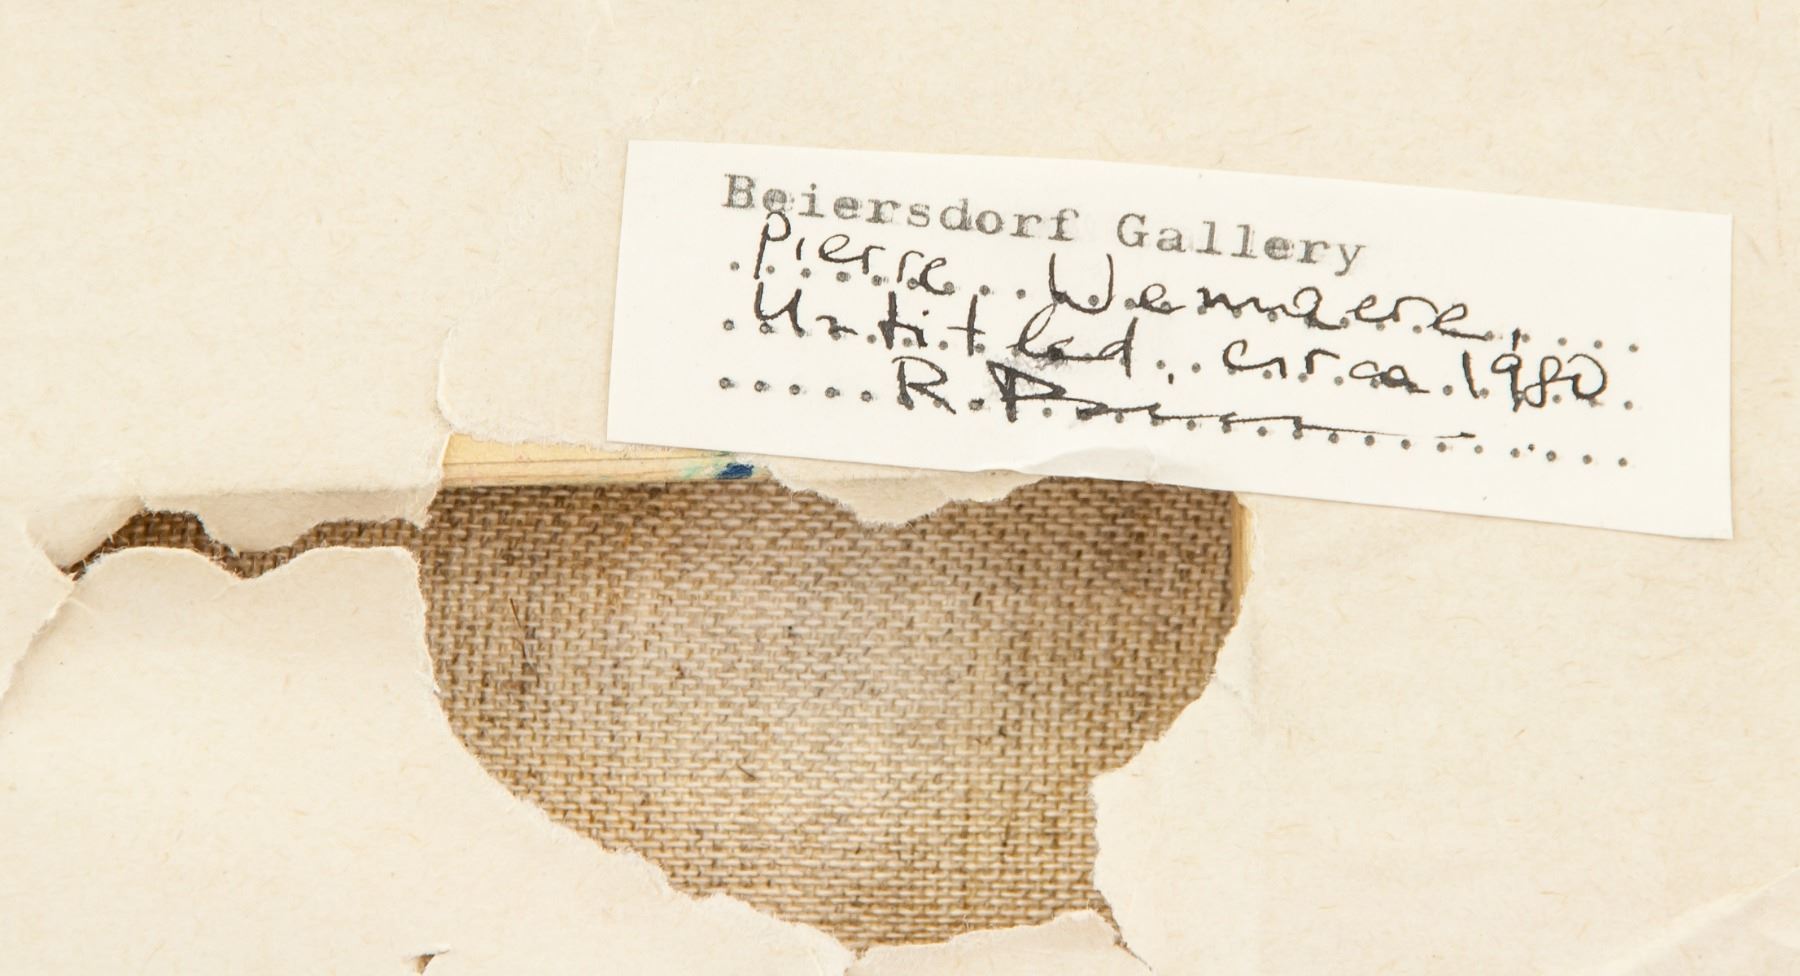 Beiersdorf Gallery
Pierre Wemaere,
Untitled, circa 1980
R.